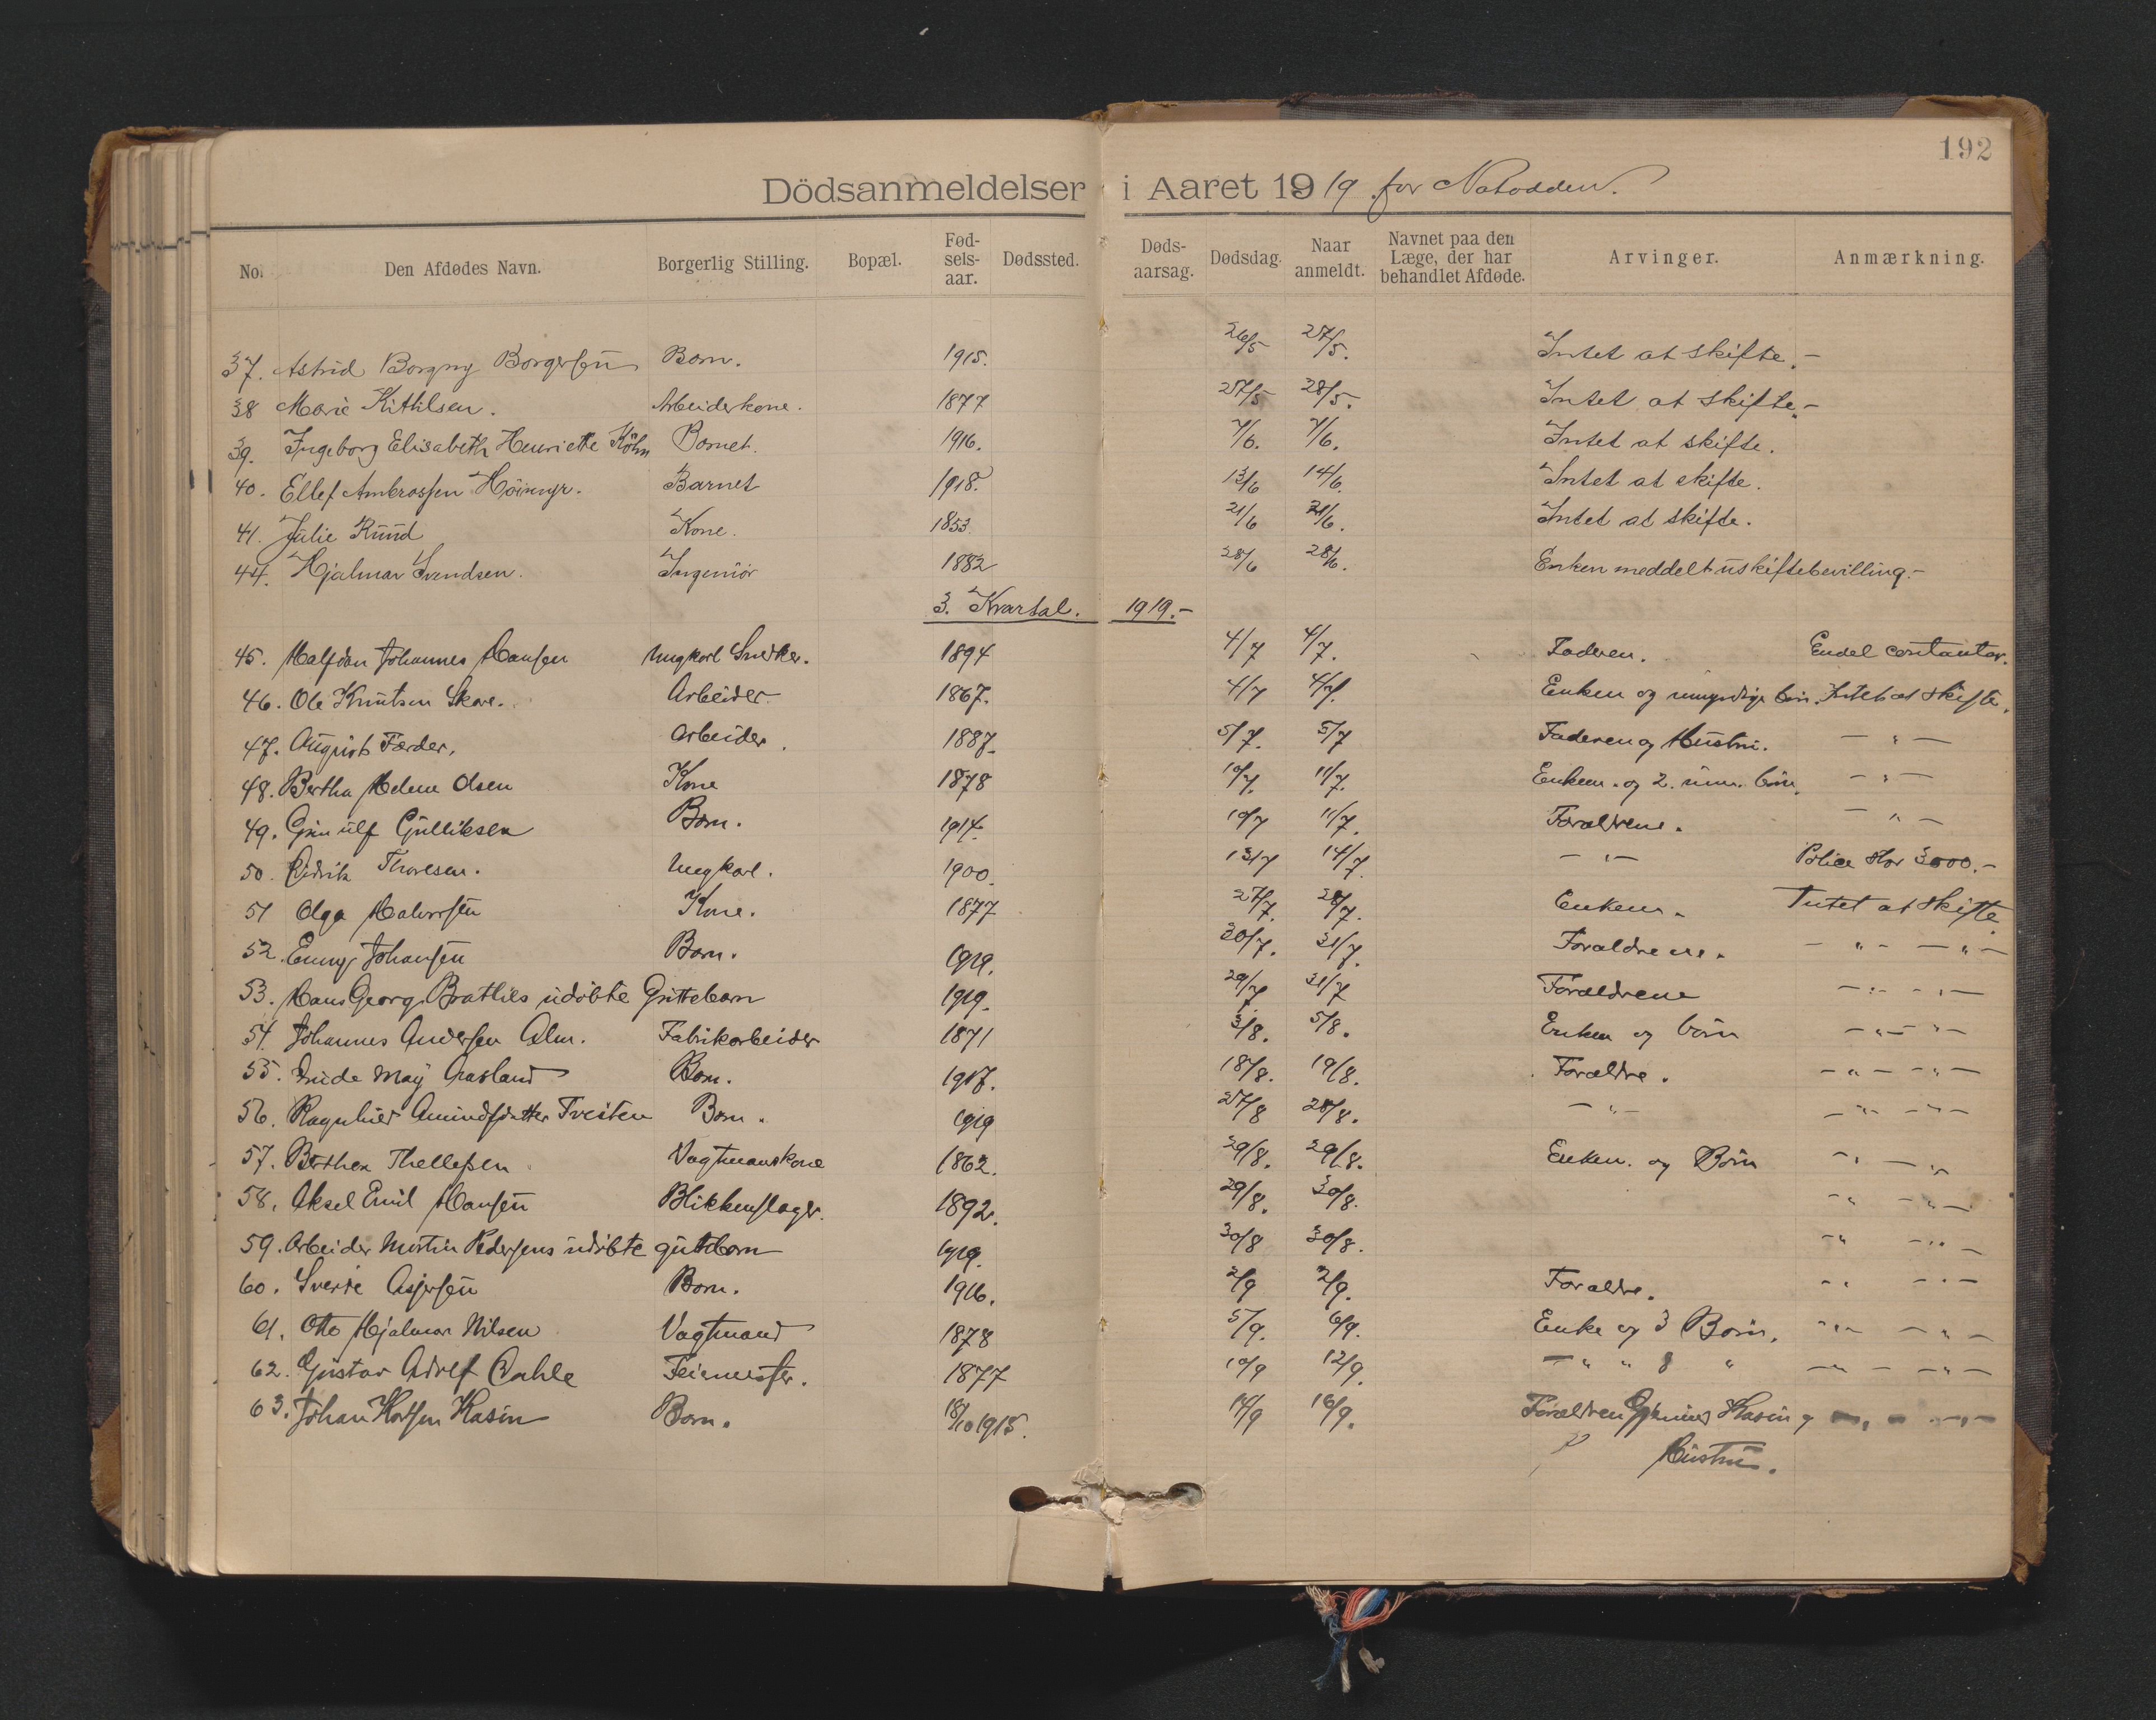 192
Dödsanmeldelser i Aaret 1919 for Notodden.
No. Den Afdødes Navn. Borgerlig Stilling. Bopæl. Fødselsaar. Dødssted. Dødsaarsag. Dødsdag. Naar anmeldt. Navnet paa den Læge, der har behandlet Afdøde. Arvinger. Anmærkning.
37. Astrid Borgny Borgersen Barn. 1915. 26/5 27/5. Intet at skifte.-
38 Marie Kittilsen. Arbeiderkone. 1877 27/5 28/5. Intet at skifte.-
39. Ingeborg Elisabeth Henriette Köhn Barnet. 1916. 7/6. 7/6. Intet at skifte.
40. Ellef Ambrossen Höimyr. Barnet 1918. 13/6 14/6. Intet at skifte.
41. Julie Ruud Kone. 1853. 21/6 21/6. Intet at skifte.
44. Hjalmar Svendsen. Ingeniör 1882 28/6 28/6. Enken meddelt uskiftebevilling.-
3. Kvartal. 1919.-
45. Halfdan Johannes Hansen Ungkarl Snedker. 1894 4/7 4/7. Faderen. Endel contanter.
46. Ole Knutsen Skare. Arbeider 1867. 4/7 4/7. Enken og umyndige børn. Intet at skifte.
47. August Færder. Arbeider. 1887. 5/7. 5/7 Faderen og Hustru. - " -
48. Bertha Helene Olsen Kone 1878 10/7. 11/7. Enkem. og 2. um. børn. - " -
49. Gunulf Gulliksen Barn. 1914. 10/7 11/7. Forældrene. - " -
50. Didrik Thoresen. Ungkarl. 1900. 13/7 14/7. - " - Police stor 3000.-
51 Olga Halvorsen Kone. 1877 27/7. 28/7. Enkem. Intet at skifte
52. Enny Johansen Barn. 1919. 30/7. 31/7. Forældrene. - " - - " -
53. Hans Georg Bratlies udöbte Guttebarn 1919. 29/7 31/7 Forældrene - " - " -
54. Johannes Andersen Alm. Fabrikarbeider 1871 3/8. 5/8. Enken og børn - " - " -
55. May Aasland Barn. 1917. 18/8. 19/8. Forældre. - " - - " -
56. Ragnhild Amundsdatter Tveiten Barn. 1919 27/8 28/8. - " - - " - - " -
57. Berthea Thellefsen Vagtmandskone 1862. 29/8. 29/8. Enkem. og Börn - " - "
58. Aksel Emil Hansen Blikkenslager. 1892. 29/8. 30/8. - " - " -
59. Arbeider Martin Pedersens udöbte gutebarn 1919. 30/8 30/8. - " - " -
60. Sverre Asjersen Barn. 1916. 2/9 2/9. Forældre. - " - " -
61. Otto Hjalmar Nilsen Vagtmand 1878 5/9. 6/9. Enke og 3 Børn. - " - - " -
62. Gustav Adolf Dahle Feiermester. 1877 10/9 12/9. - " " 8 " - " - - " -
63. Johan Kasin Barn. 18/10 1915. 14/9 16/9. Forældrene Kasin og - " - - " -
Hustru.